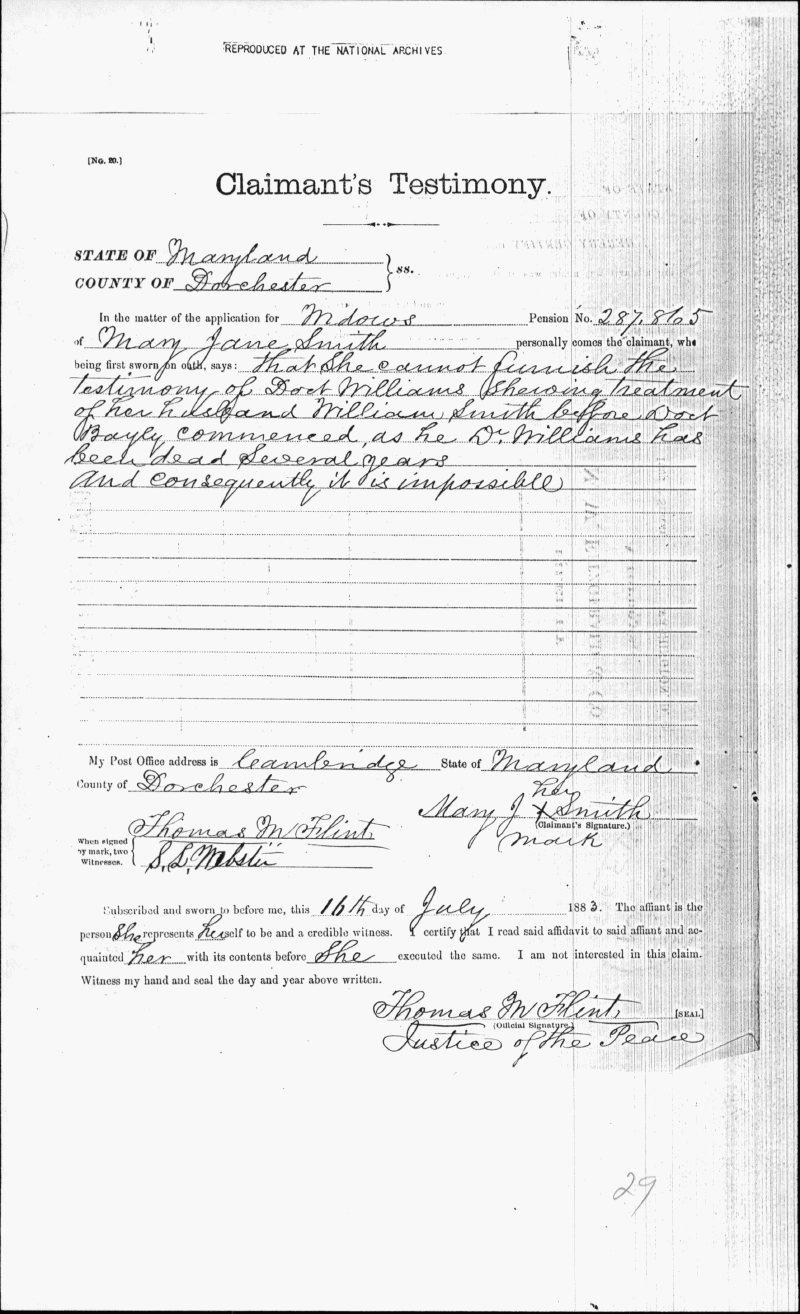 REPRODUCED AT THE NATIONAL ARCHIVES
[No. 20.]
Claimant's Testimony.
STATE OF Maryland
COUNTY OF Dorchester } ss.
In the matter of the application for Widows Pension No. 287,865
of Mary Jane Smith personally comes the claimant, who
being first sworn on oath, says: that She cannot furnish the
testimony of Doct Williams shewing treatment
of her husband William Smith before Doct
Bayly commenced, as he Dr. Williams has
been dead Several years
And consequently it is impossible
My Post Office address is Cambridge State of Maryland
County of Dorchester
her
Mary J X Smith
(Claimant's Signature.)
mark
Thomas M Flint
When signed by mark, two Witnesses. {
S. L. Webster
Subscribed and sworn to before me, this 16th day of July 1883. The affiant is the
person She represents herself to be and a credible witness. I certify that I read said affidavit to said affiant and ac-
quainted her with its contents before She executed the same. I am not interested in this claim.
Witness my hand and seal the day and year above written.
Thomas M Flint [SEAL]
(Official Signature.)
Justice of the Peace
29